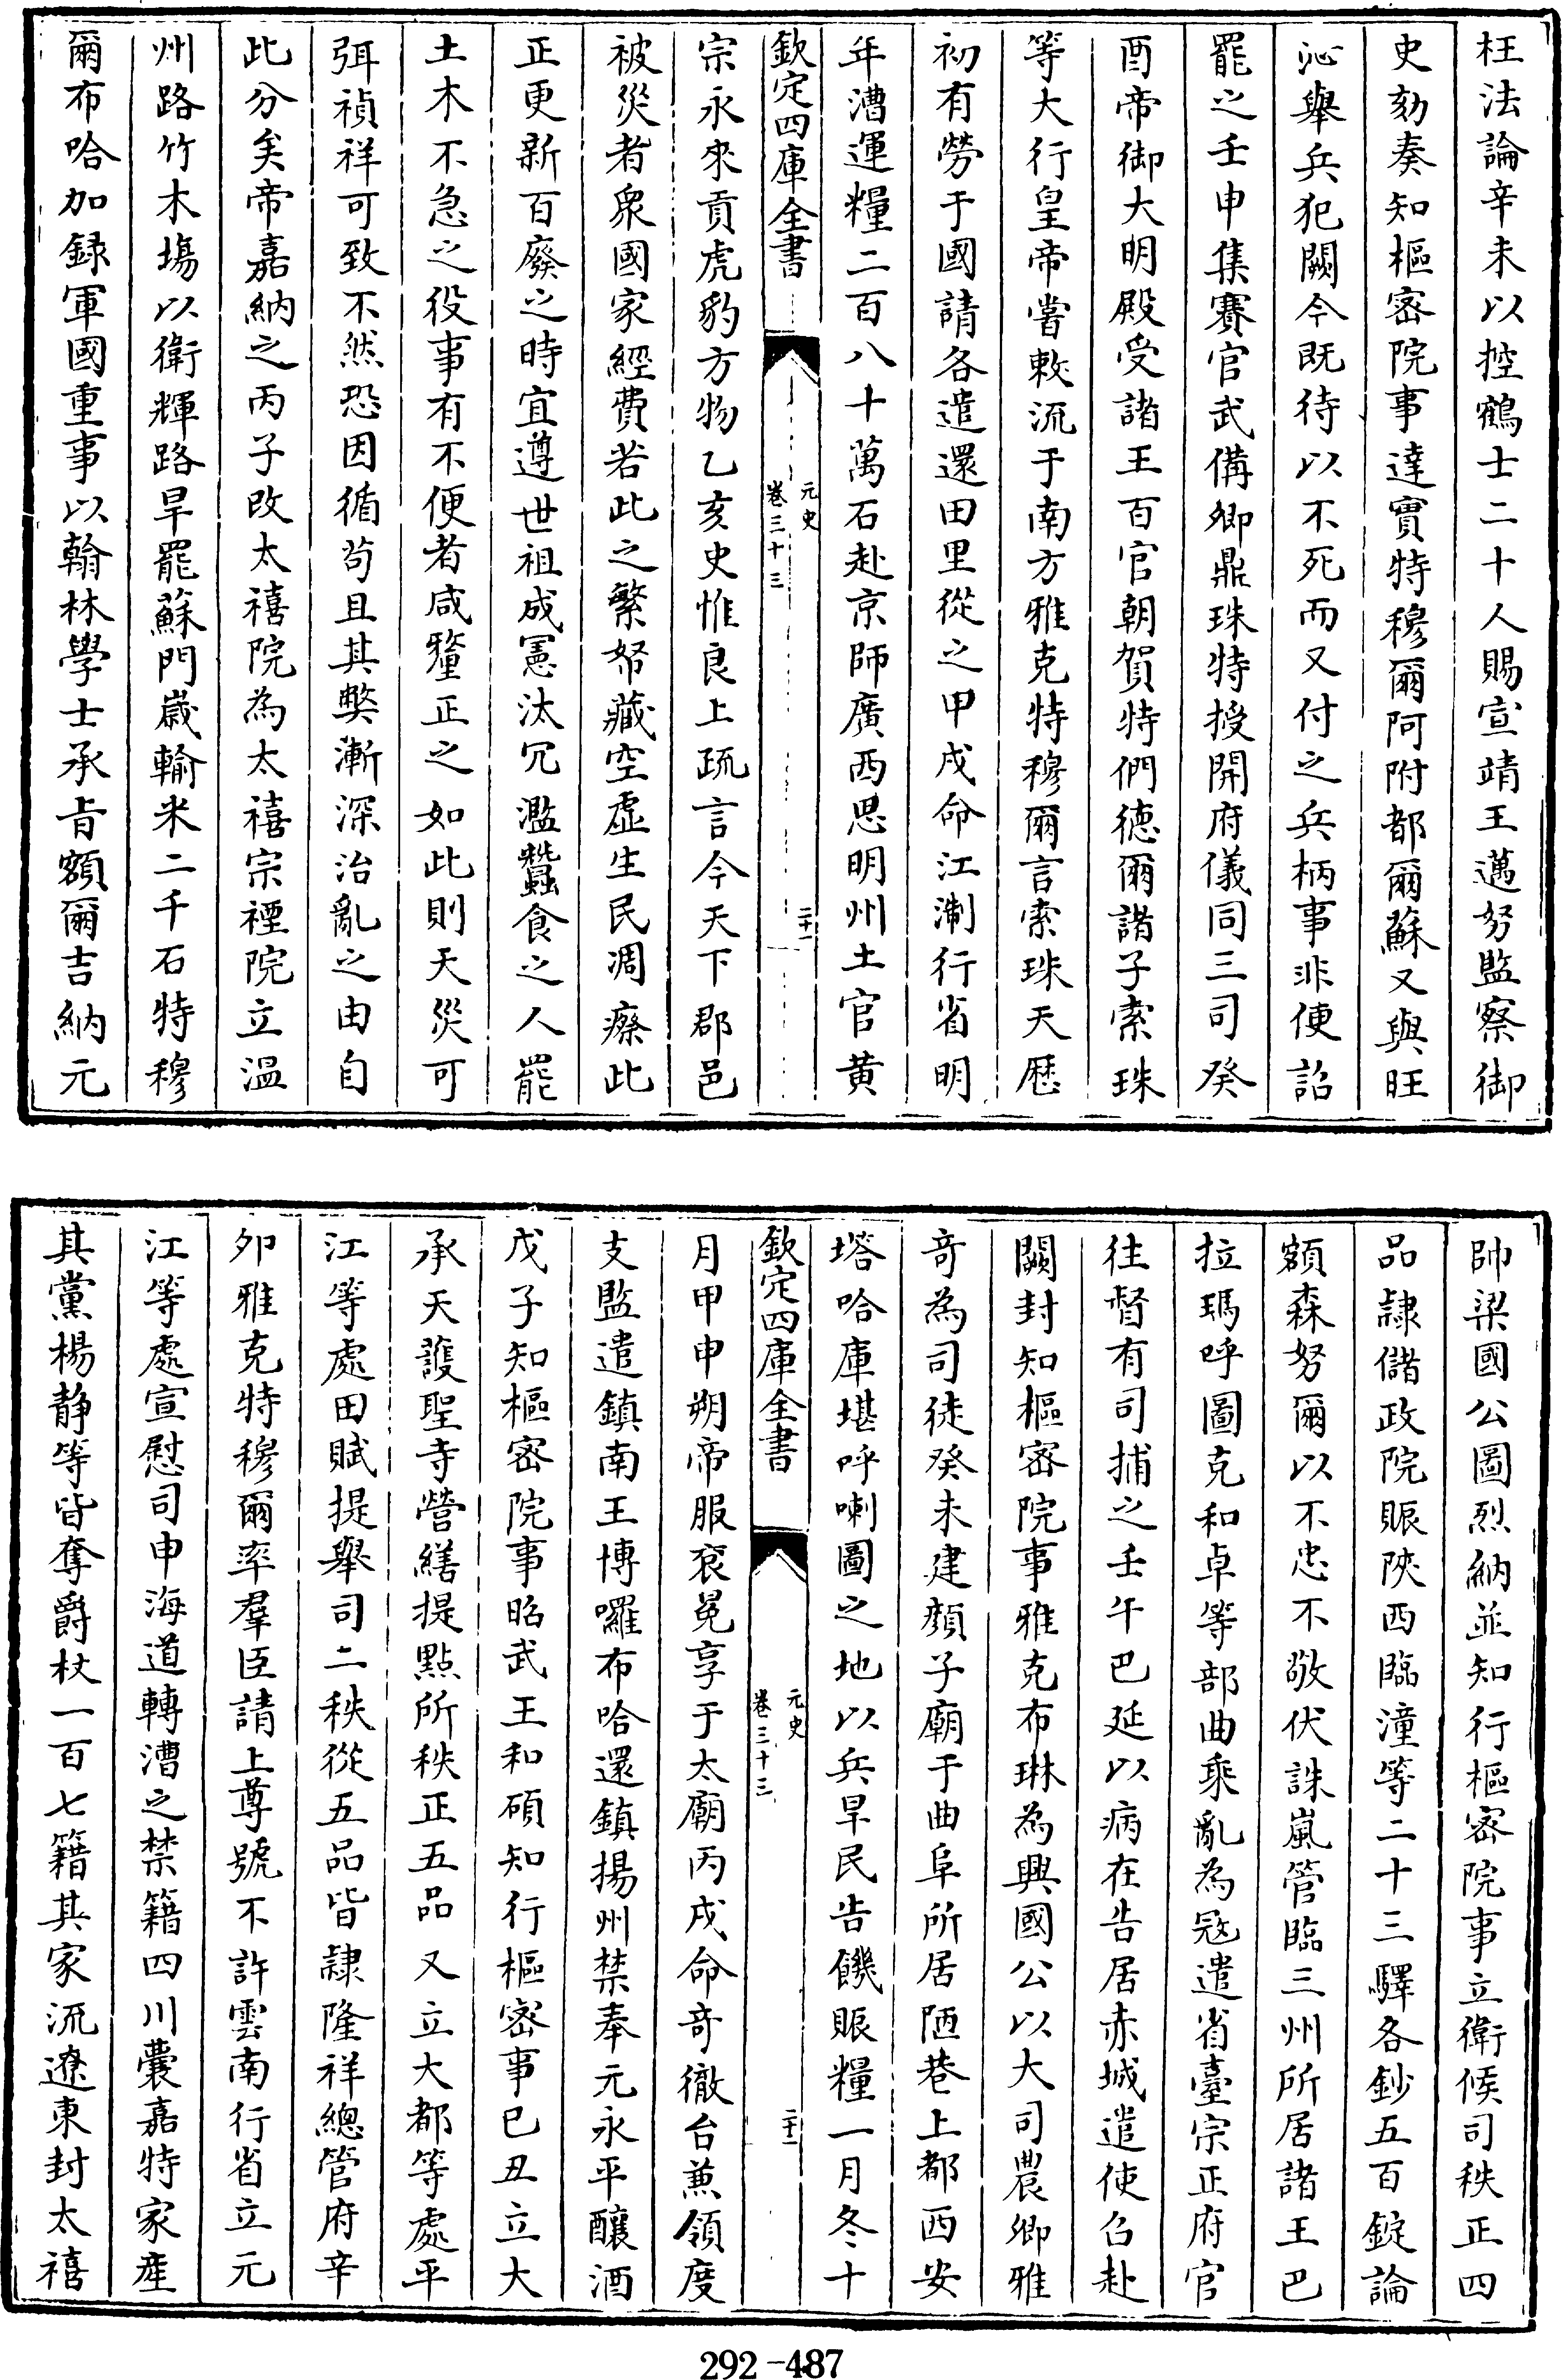 枉法論辛未以控鶴士二十人賜宣靖王邁努監察御
史劾奏知樞密院事達實特穆爾阿附都爾蘇又與旺
沁舉兵犯闕今既待以不死而又付之兵柄事非便詔
罷之壬申集賽官武備卿鼎珠特授開府儀同三司癸
酉帝御大明殿受諸王百官朝賀特們德爾諸子索珠
等大行皇帝嘗敕流于南方雅克特穆爾言索珠天歷
初有勞于國請各遣還田里從之甲戌命江淛行省明
年漕運糧二百八十萬石赴京師廣西思明州土官黄
欽定四庫全書
元史
卷三十三
二十一
宗永來貢虎豹方物乙亥史惟良上疏言今天下郡邑
被災者衆國家經費若此之繁帑藏空虛生民凋瘵此
正更新百廢之時宜遵世祖成憲汰冗濫蠶食之人罷
土木不急之役事有不便者咸釐正之如此則天災可
弭禎祥可致不然恐因循苟且其弊漸深治亂之由自
此分矣帝嘉納之丙子改太禧院為太禧宗禋院立溫
州路竹木塲以衛輝路旱罷蘇門歲輸米二千石特穆
爾布哈加録軍國重事以翰林學士承㫖額爾吉納元
帥梁國公圖烈納並知行樞密院事立衛候司秩正四
品隷儲政院賑陜西臨潼等二十三驛各鈔五百錠論
額森努爾以不忠不敬伏誅嵐管臨三州所居諸王巴
拉瑪呼圖克和卓等部曲乘亂為冦遣省臺宗正府官
往督有司捕之壬午巴延以病在告居赤城遣使召赴
闕封知樞密院事雅克布琳為興國公以大司農卿雅
奇為司徒癸未建顔子廟于曲阜所居陋巷上都西安
塔哈庫堪呼喇圖之地以兵旱民告饑賑糧一月冬十
欽定四庫全書
元史
卷三十三
二十一
月甲申朔帝服衮冕享于太廟丙戌命奇徹台兼領度
支監遣鎮南王博囉布哈還鎮揚州禁奉元永平釀酒
戊子知樞密院事昭武王和碩知行樞密事已丑立大
承天護聖寺營繕提點所秩正五品又立大都等處平
江等處田賦提舉司二秩從五品皆隷隆祥總管府辛
夘雅克特穆爾率羣臣請上尊號不許雲南行省立元
江等處宣慰司申海道轉漕之禁籍四川囊嘉特家産
其黨楊静等皆奪爵杖一百七籍其家流遼東封太禧
292-487